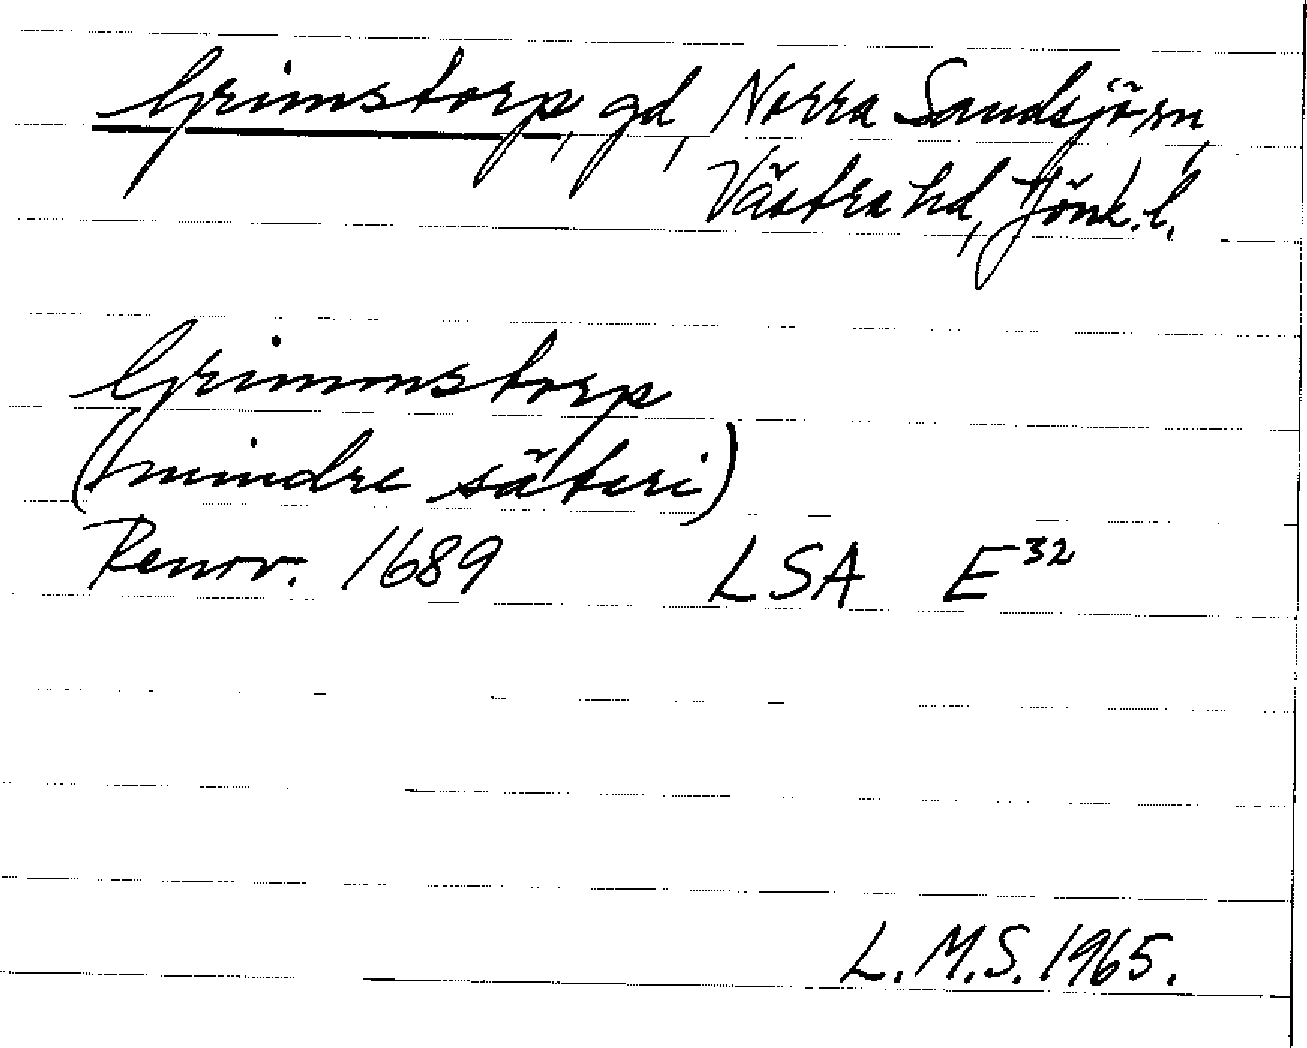 Grimstorp, gd, Norra Sandsjö sn,
Västra hd, Jönk. l.
Grimmstorp
(mindre säteri)
Renov. 1689 LSA E³²
L.M.S. 1965.